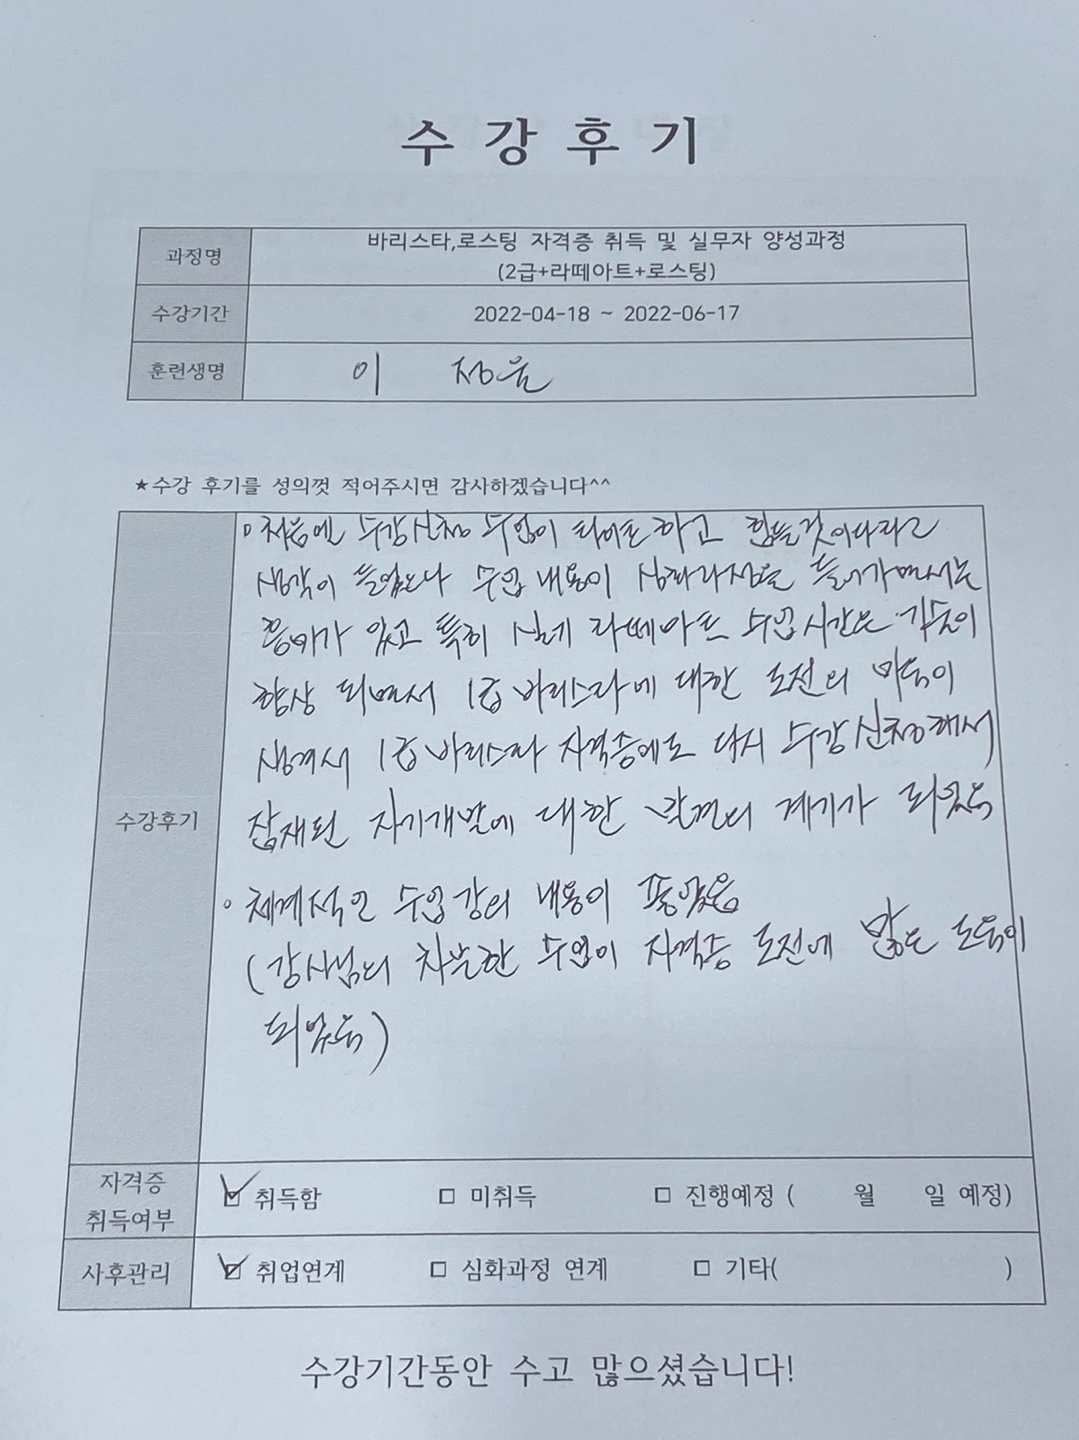 수강후기
과정명
바리스타,로스팅 자격증 취득 및 실무자 양성과정
(2급+라떼아트+로스팅)
수강기간
2022-04-18 ~ 2022-06-17
훈련생명
이 정윤
★수강 후기를 성의껏 적어주시면 감사하겠습니다^^
수강후기
◦처음엔 수강신청 수업이 타이트하고 힘들것이다라고
생각이 들었으나 수업 내용이 들어가면서는
흥미가 있고 특히 실기 라떼아트 수업시간은 기술이
향상 되면서 1급 바리스타에 대한 도전의 마음이
생겨서 1급 바리스타 자격증에도 다시 수강신청해서
잠재된 자기개발에 대한 발견의 계기가 되었음
◦체계적인 수업 강의 내용이 좋았음
(강사님의 차분한 수업이 자격증 도전에 많은 도움이
되었음)
자격증
취득여부
☑ 취득함 □ 미취득 □ 진행예정 ( 월 일 예정)
사후관리
☑ 취업연계 □ 심화과정 연계 □ 기타( )
수강기간동안 수고 많으셨습니다!